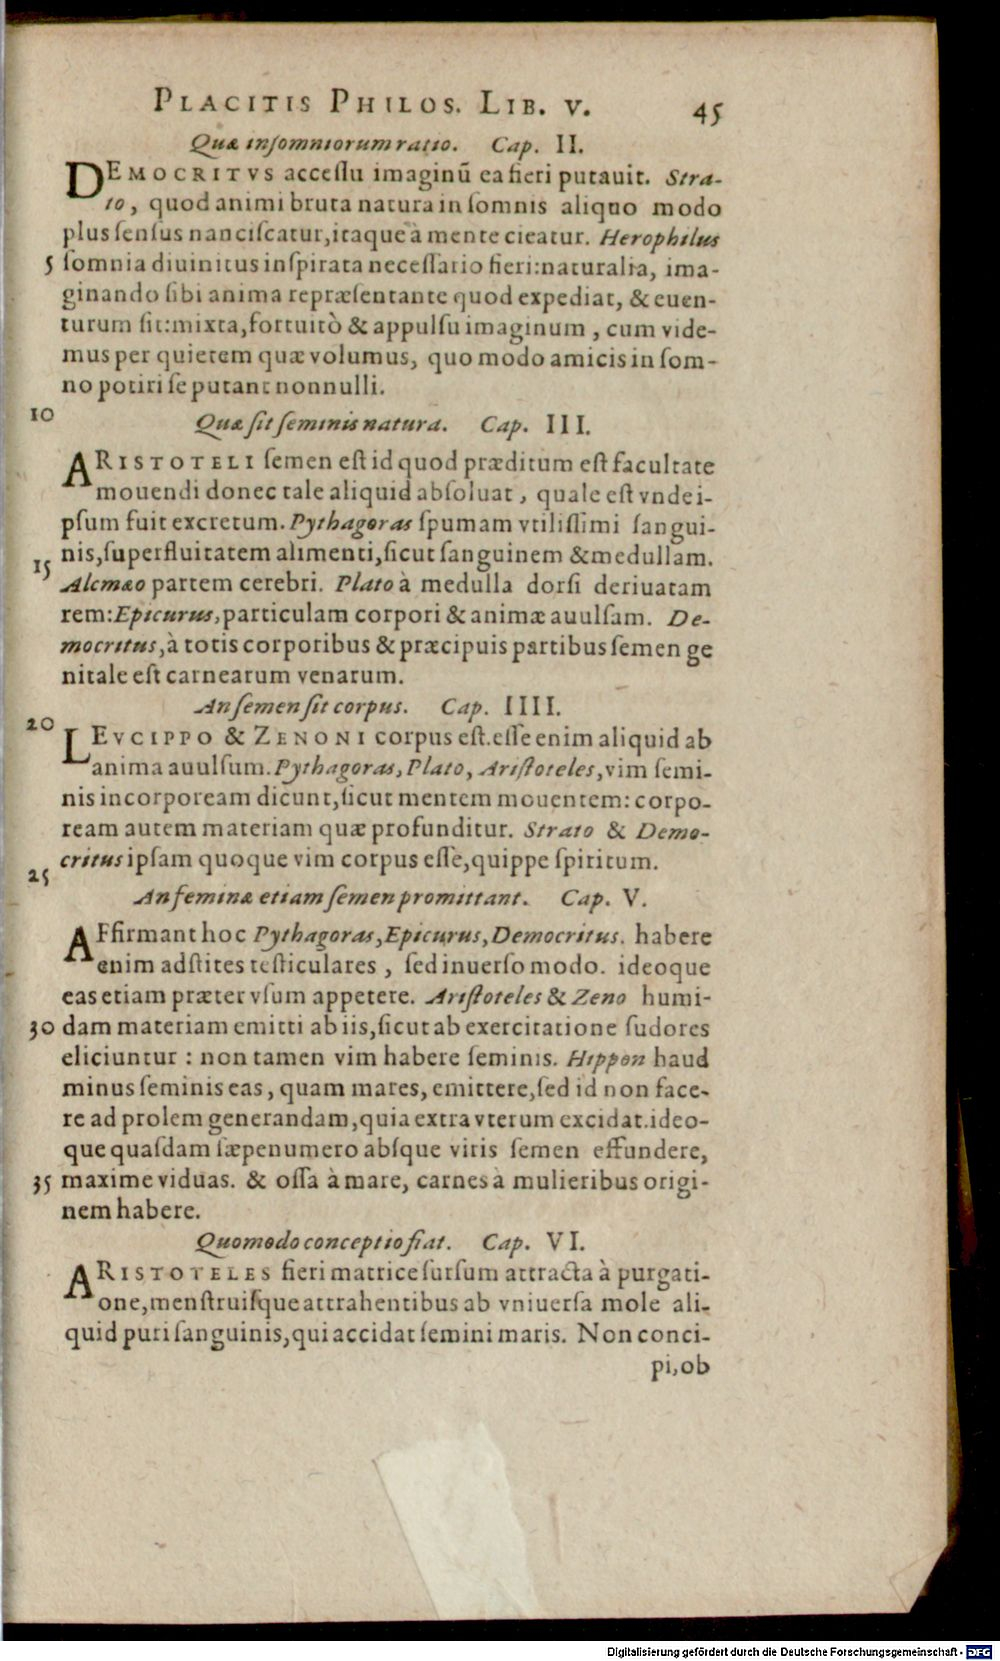 PLACITIS PHILOS. LIB. V. 45
Quæ insomniorum ratio. Cap. II.
DEMOCRITVS accessu imaginū ea fieri putauit. Stra-
to, quod animi bruta natura in somnis aliquo modo
plus sensus nanciscatur, itaque à mente cieatur. Herophilus
5 somnia diuinitus inspirata necessario fieri: naturalia, ima-
ginando sibi anima repræsentante quod expediat, & euen-
turum sit: mixta, fortuitò & appulsu imaginum, cum vide-
mus per quietem quæ volumus, quo modo amicis in som-
no potiri se putant nonnulli.
10 Quæ sit seminis natura. Cap. III.
ARISTOTELI semen est id quod præditum est facultate
mouendi donec tale aliquid absoluat, quale est vnde i-
psum fuit excretum. Pythagoras spumam vtilissimi sangui-
nis, superfluitatem alimenti, sicut sanguinem & medullam.
15 Alcmæo partem cerebri. Plato à medulla dorsi deriuatam
rem: Epicurus, particulam corpori & animæ auulsam. De-
mocritus, à totis corporibus & præcipuis partibus semen ge
nitale est carnearum venarum.
An semen sit corpus. Cap. IIII.
20 LEVCIPPO & ZENONI corpus est. esse enim aliquid ab
anima auulsum. Pythagoras, Plato, Aristoteles, vim semi-
nis incorpoream dicunt, sicut mentem mouentem: corpo-
ream autem materiam quæ profunditur. Strato & Demo-
critus ipsam quoque vim corpus esse, quippe spiritum.
25 An feminæ etiam semen promittant. Cap. V.
AFfirmant hoc Pythagoras, Epicurus, Democritus. habere
enim adstites testiculares, sed inuerso modo. ideoque
eas etiam præter vsum appetere. Aristoteles & Zeno humi-
30 dam materiam emitti ab iis, sicut ab exercitatione sudores
eliciuntur: non tamen vim habere seminis. Hippon haud
minus seminis eas, quam mares, emittere, sed id non face-
re ad prolem generandam, quia extra vterum excidat. ideo-
que quasdam sæpenumero absque viris semen effundere,
35 maxime viduas. & ossa à mare, carnes à mulieribus origi-
nem habere.
Quomodo conceptio fiat. Cap. VI.
ARISTOTELES fieri matrice sursum attracta à purgati-
one, menstruisque attrahentibus ab vniuersa mole ali-
quid puri sanguinis, qui accidat semini maris. Non conci-
pi, ob
Digitalisierung gefördert durch die Deutsche Forschungsgemeinschaft - DFG